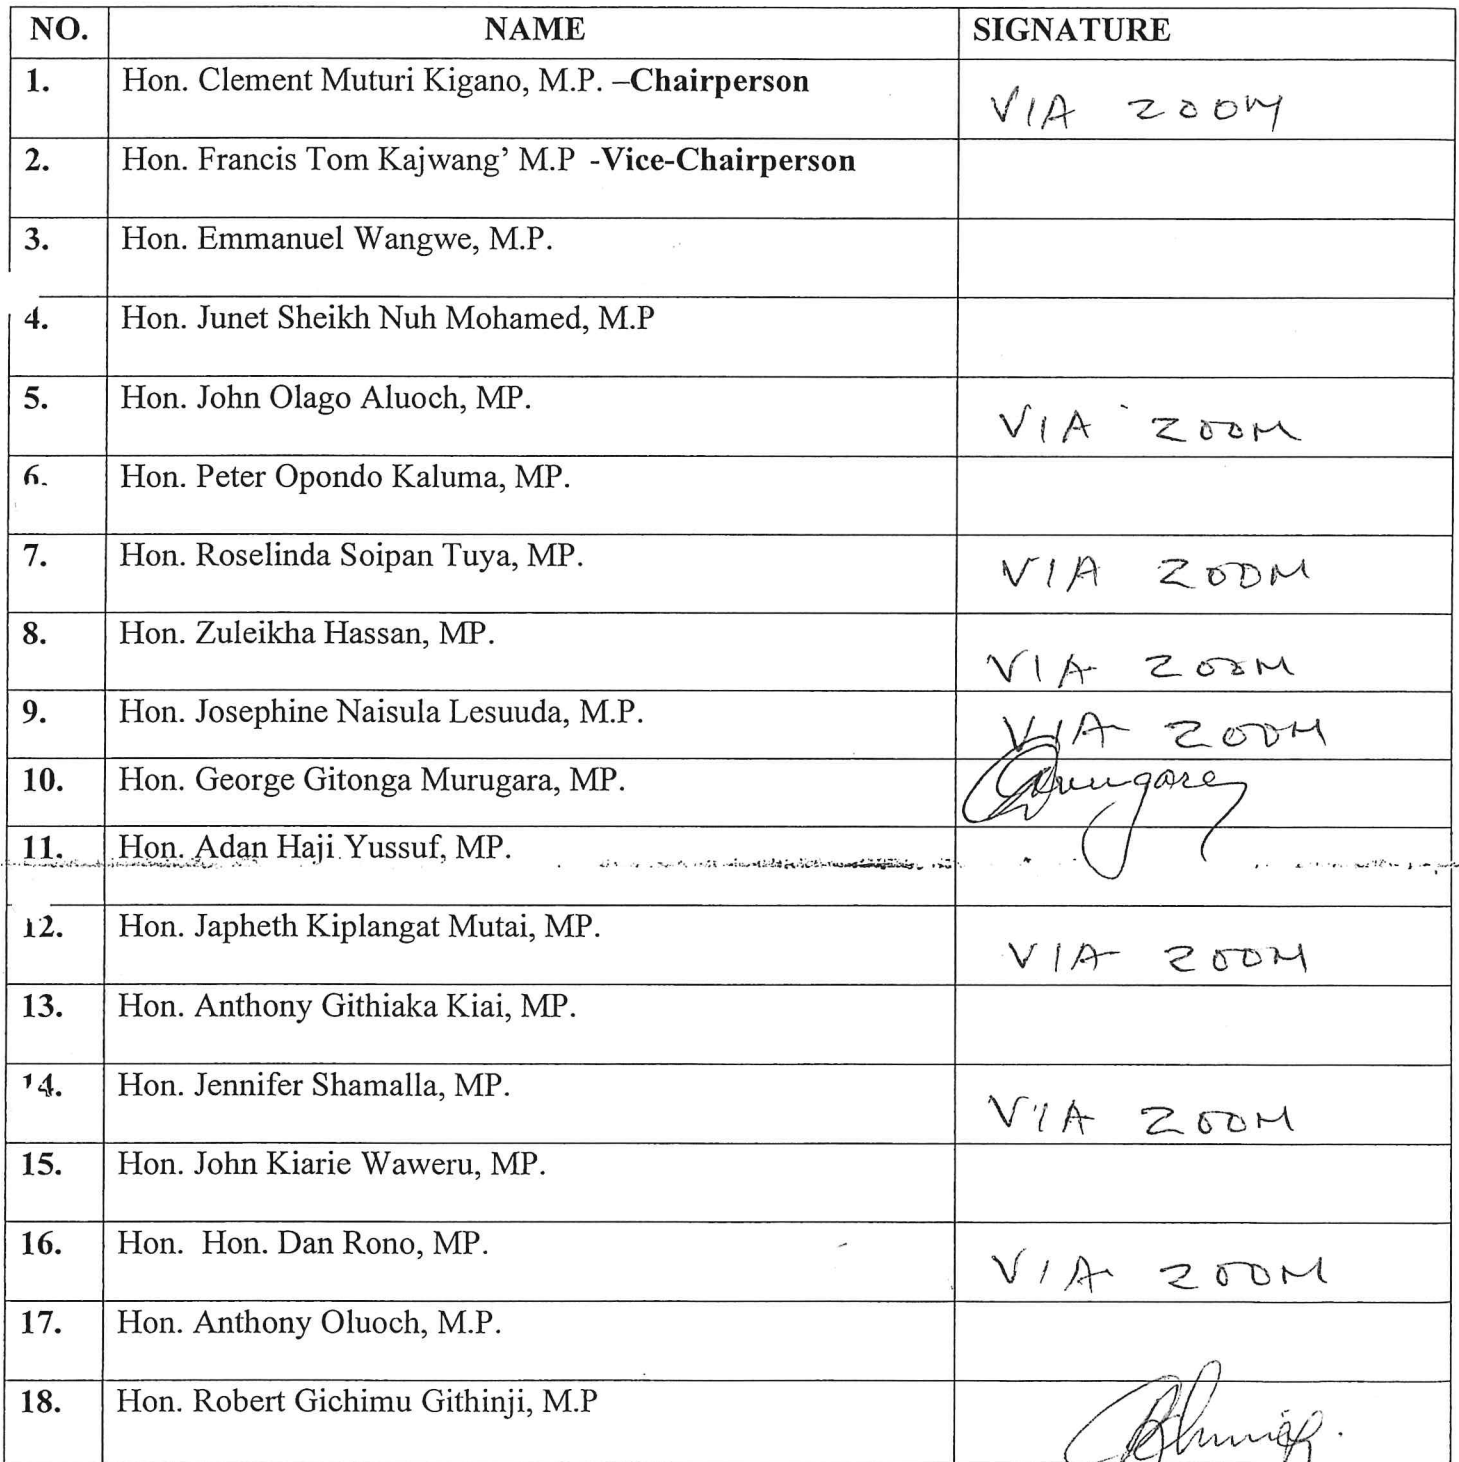 NO. NAME SIGNATURE
1. Hon. Clement Muturi Kigano, M.P. –Chairperson VIA ZOOM
2. Hon. Francis Tom Kajwang’ M.P -Vice-Chairperson
3. Hon. Emmanuel Wangwe, M.P.
4. Hon. Junet Sheikh Nuh Mohamed, M.P
5. Hon. John Olago Aluoch, MP. VIA ZOOM
6. Hon. Peter Opondo Kaluma, MP.
7. Hon. Roselinda Soipan Tuya, MP. VIA ZOOM
8. Hon. Zuleikha Hassan, MP. VIA ZOOM
9. Hon. Josephine Naisula Lesuuda, M.P. VIA ZOOM
10. Hon. George Gitonga Murugara, MP.
11. Hon. Adan Haji Yussuf, MP.
12. Hon. Japheth Kiplangat Mutai, MP. VIA ZOOM
13. Hon. Anthony Githiaka Kiai, MP.
14. Hon. Jennifer Shamalla, MP. VIA ZOOM
15. Hon. John Kiarie Waweru, MP.
16. Hon. Hon. Dan Rono, MP. VIA ZOOM
17. Hon. Anthony Oluoch, M.P.
18. Hon. Robert Gichimu Githinji, M.P